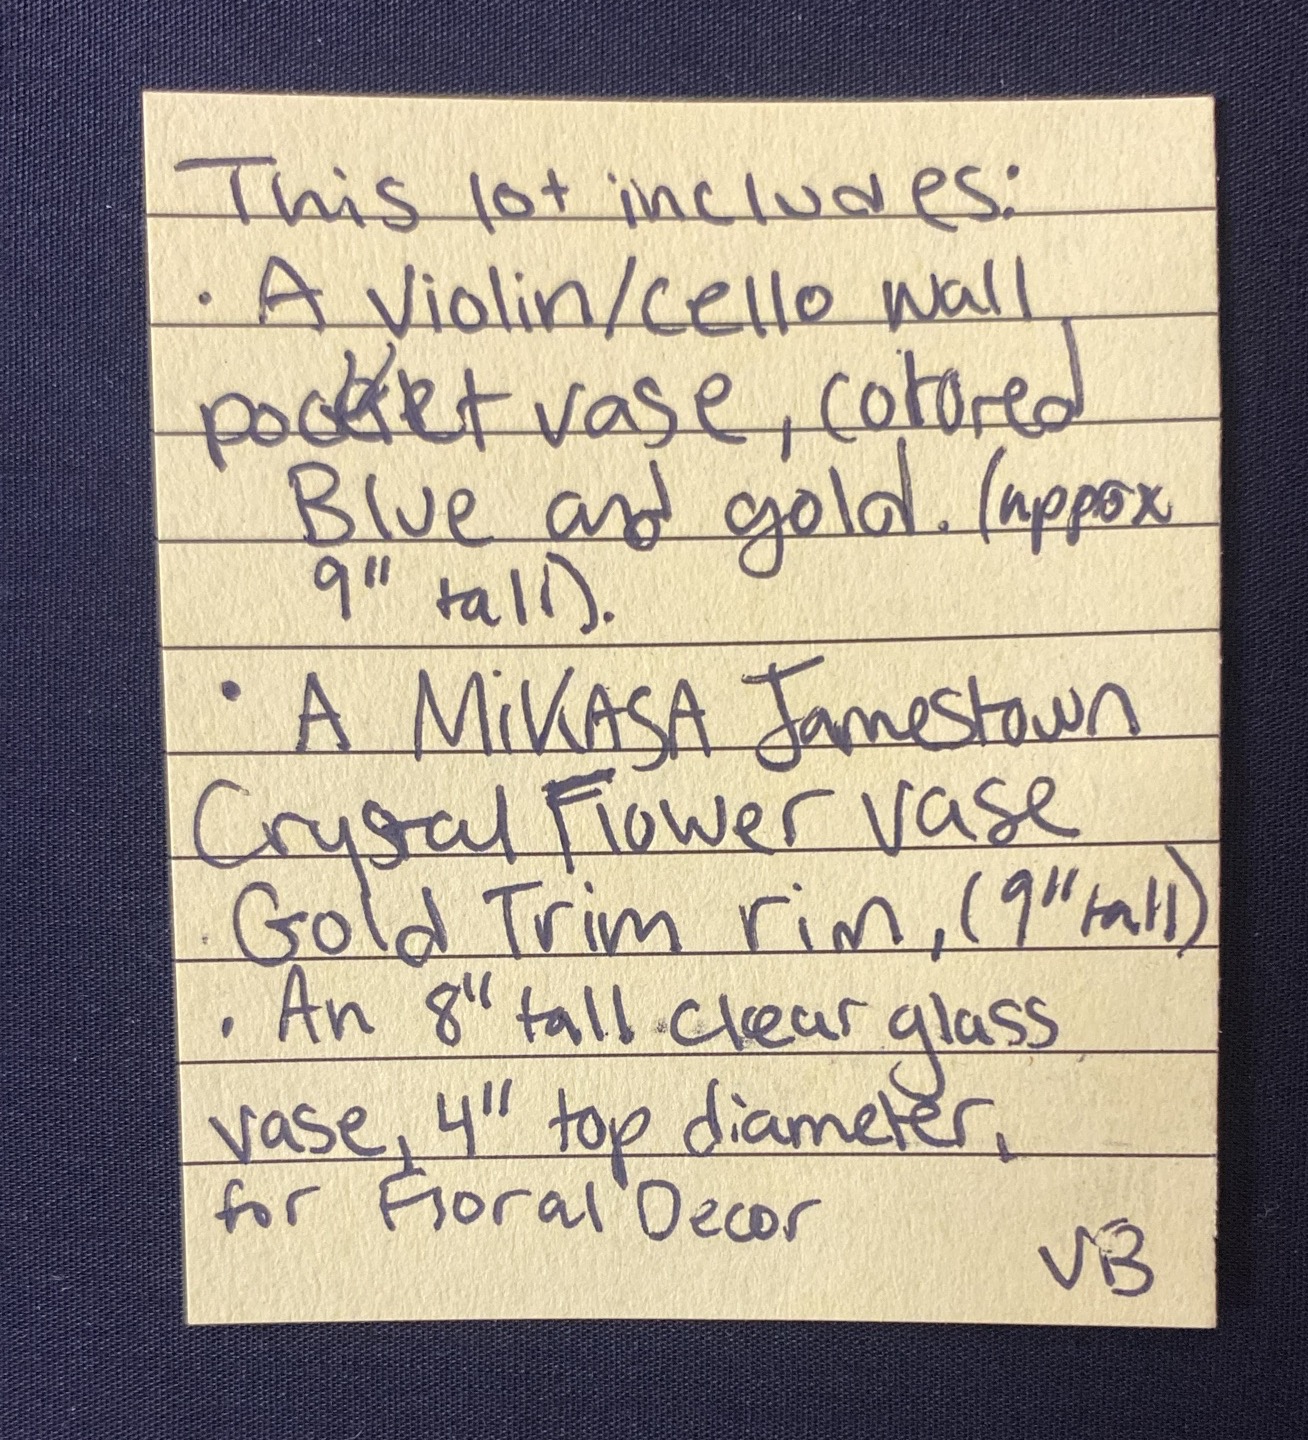 This lot includes:
· A violin/cello wall
pocket vase, colored
Blue and gold. (appox
9" tall).
· A MiKASA Jamestown
Crystal Flower vase
Gold Trim rim, (9" tall)
· An 8" tall clear glass
vase, 4" top diameter,
for Floral Decor
VB